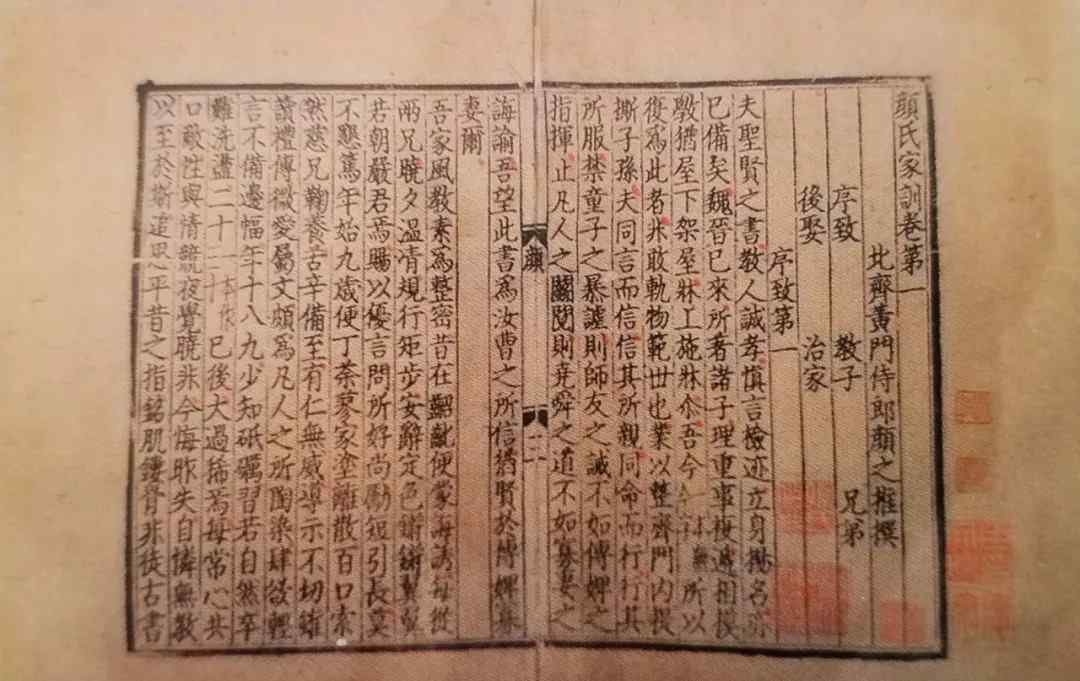 顏氏家訓卷第一
北齊黃門侍郎顏之推撰
序致 教子 兄弟
後娶 治家
序致第一
夫聖賢之書教人誠孝慎言檢迹立身揚名亦
已備矣魏晉已來所著諸子理重事複遞相模
斆猶屋下架屋牀上施牀尒吾今 所以
復爲此者非敢軌物範世也業以整齊門內提
撕子孫夫同言而信信其所親同命而行行其
所服禁童子之暴謔則師友之誡不如傅婢之
指揮止凡人之鬬䦧則堯舜之道不如寡妻之
顏 二
誨諭吾望此書爲汝曹之所信猶賢於傅婢寡
妻爾
吾家風教素爲整密昔在齠齔便蒙誨誘每從
兩兄曉夕溫凊規行矩步安辭定色鏘鏘翼翼
若朝嚴君焉賜以優言問所好尚勵短引長莫
不懇篤年始九歲便丁荼蓼家塗離散百口索
然慈兄鞠養苦辛備至有仁無威導示不切雖
讀禮傳微愛屬文頗爲凡人之所陶染肆欲輕
言不備邊幅年十八九少知砥礪習若自然卒
難洗盪二十 已後大過稀焉每常心共
口敵性與情競夜覺曉非今悔昨失自憐無教
以至於斯追思平昔之指銘肌鏤骨非徒古書